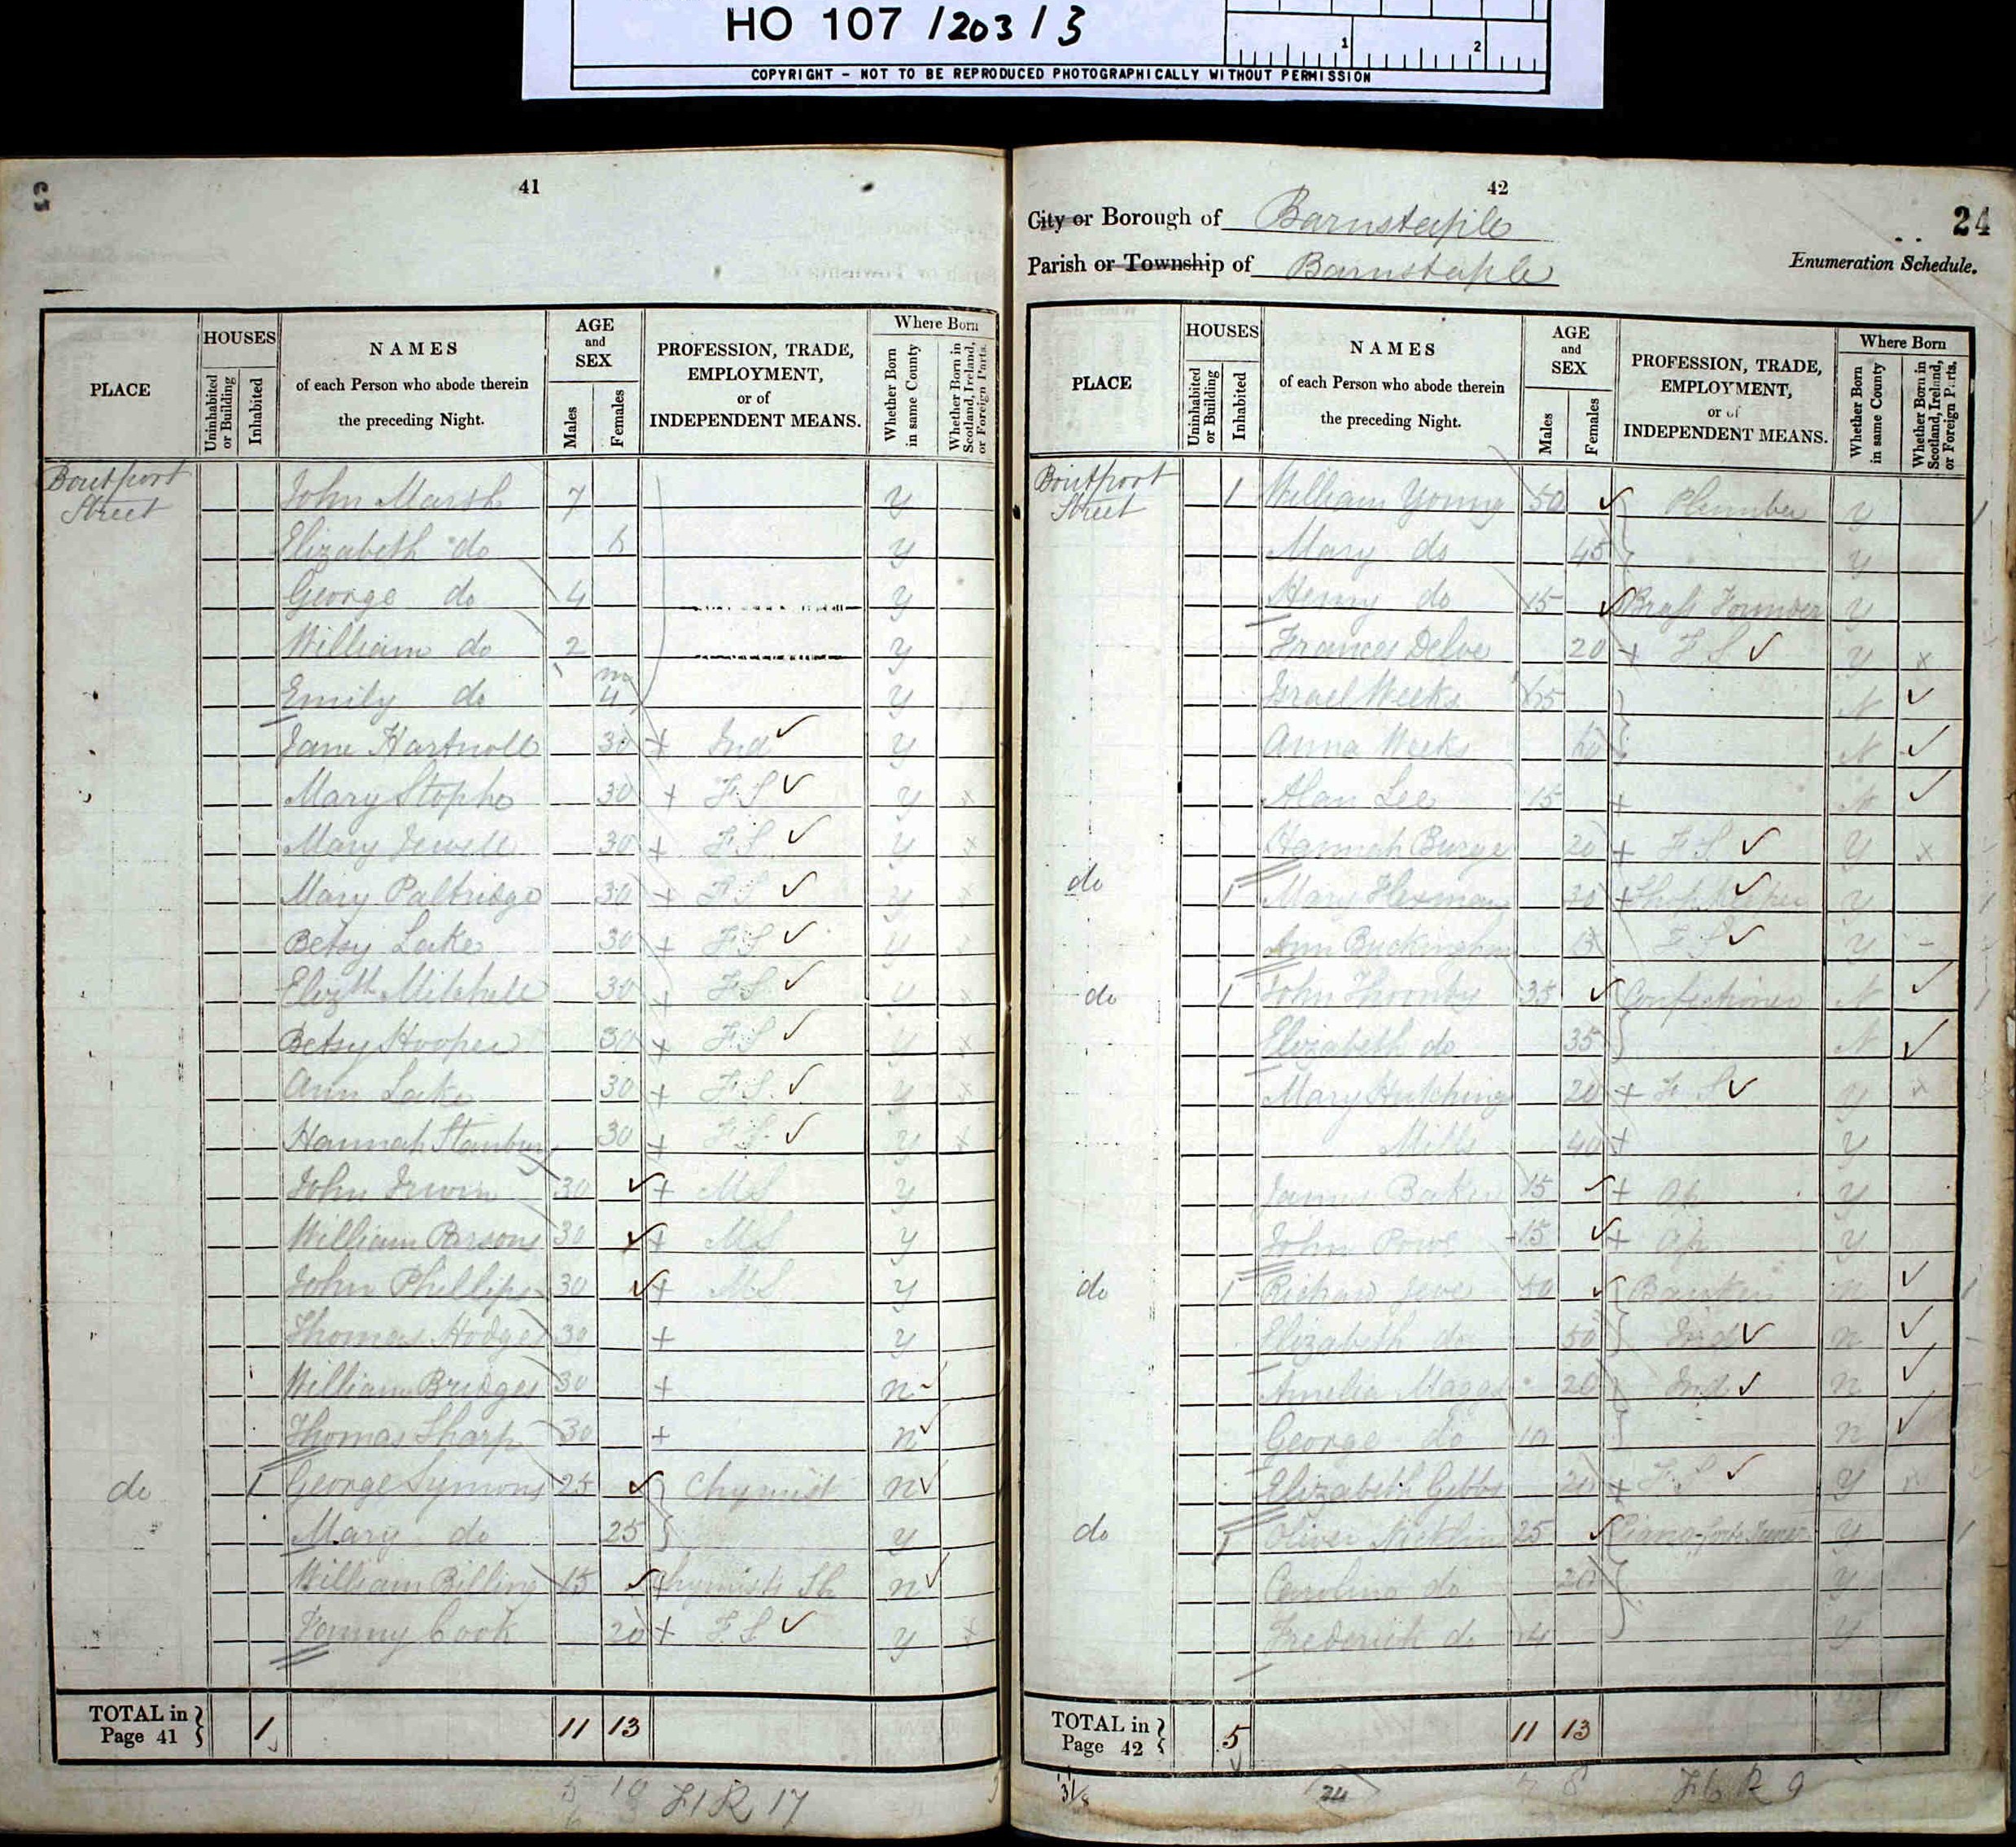 HO 107 /203/3
COPYRIGHT - NOT TO BE REPRODUCED PHOTOGRAPHICALLY WITHOUT PERMISSION
41
PLACE HOUSES Uninhabited or Building Inhabited NAMES of each Person who abode therein the preceding Night. AGE and SEX Males Females PROFESSION, TRADE, EMPLOYMENT, or of INDEPENDENT MEANS. Where Born Whether Born in same County Whether Born in Scotland, Ireland, or Foreign Parts.
Boutport Street John Marsh 7 y
Elizabeth do y
George do 4 y
William do 2 y
Emily do m 4 y
Jane Hartnoll 30 + Ind y
Mary 30 + F.S y
Mary Jewell 30 + F.S y
Mary Paltridge 30 + F.S y
Betsy Lake 30 + F.S y
Elizth Mitchell 30 + F.S y
Betsy Hooper 30 + F.S y
Ann Lake 30 + F.S. y
Hannah Stanbury 30 + F.S. y
John Irwin 30 + MS y
William Parsons 30 + MS y
John Phillips 30 + MS y
Thomas Hodge 30 + y
William Bridges 30 + n
Thomas Sharp 30 + n
do 1 George Symons 25 Chymist n
Mary do 25 y
William Billing 15 Chymists Sh n
Fanny Cook 20 + F.S. y
TOTAL in Page 41 1 11 13
42
24
City or Borough of Barnstaple
Parish or Township of Barnstaple
Enumeration Schedule.
PLACE HOUSES Uninhabited or Building Inhabited NAMES of each Person who abode therein the preceding Night. AGE and SEX Males Females PROFESSION, TRADE, EMPLOYMENT, or of INDEPENDENT MEANS. Where Born Whether Born in same County Whether Born in Scotland, Ireland, or Foreign Parts.
Boutport Street 1 William Young 50 Plumber y
Mary do 45 y
Henry do 15 Brass Founder y
Frances Delve 20 + F S y
Israel Weeks 65 N
Anna Weeks 60 N
Alan Lee 15 + N
Hannah Burge 20 + F S y
do 1 Mary Hexman 30 + Shop Keeper y
Ann Buckingham F S y
do 1 John Thornby 35 Confectioner N
Elizabeth do 35 N
Mary Hutchings 20 + F S y
Mills 40 + y
James Baker 15 + Ap y
John 15 + Ap y
do 1 Richard Banker n
Elizabeth do 50 Ind n
Amelia Maggs 20 Ind n
George do 10 n
Elizabeth Gibbs 20 + F S y
do 1 Oliver Nicklin 25 Piano-forte Tuner y
Caroline do 20 y
Frederick do y
TOTAL in Page 42 5 11 13